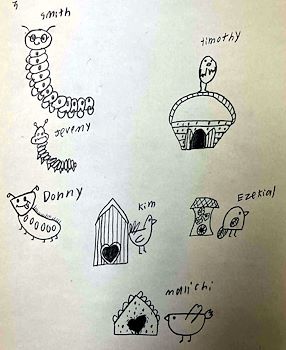 smith
timothy
Jeremy
Donny
Kim
Ezekial
maliichi